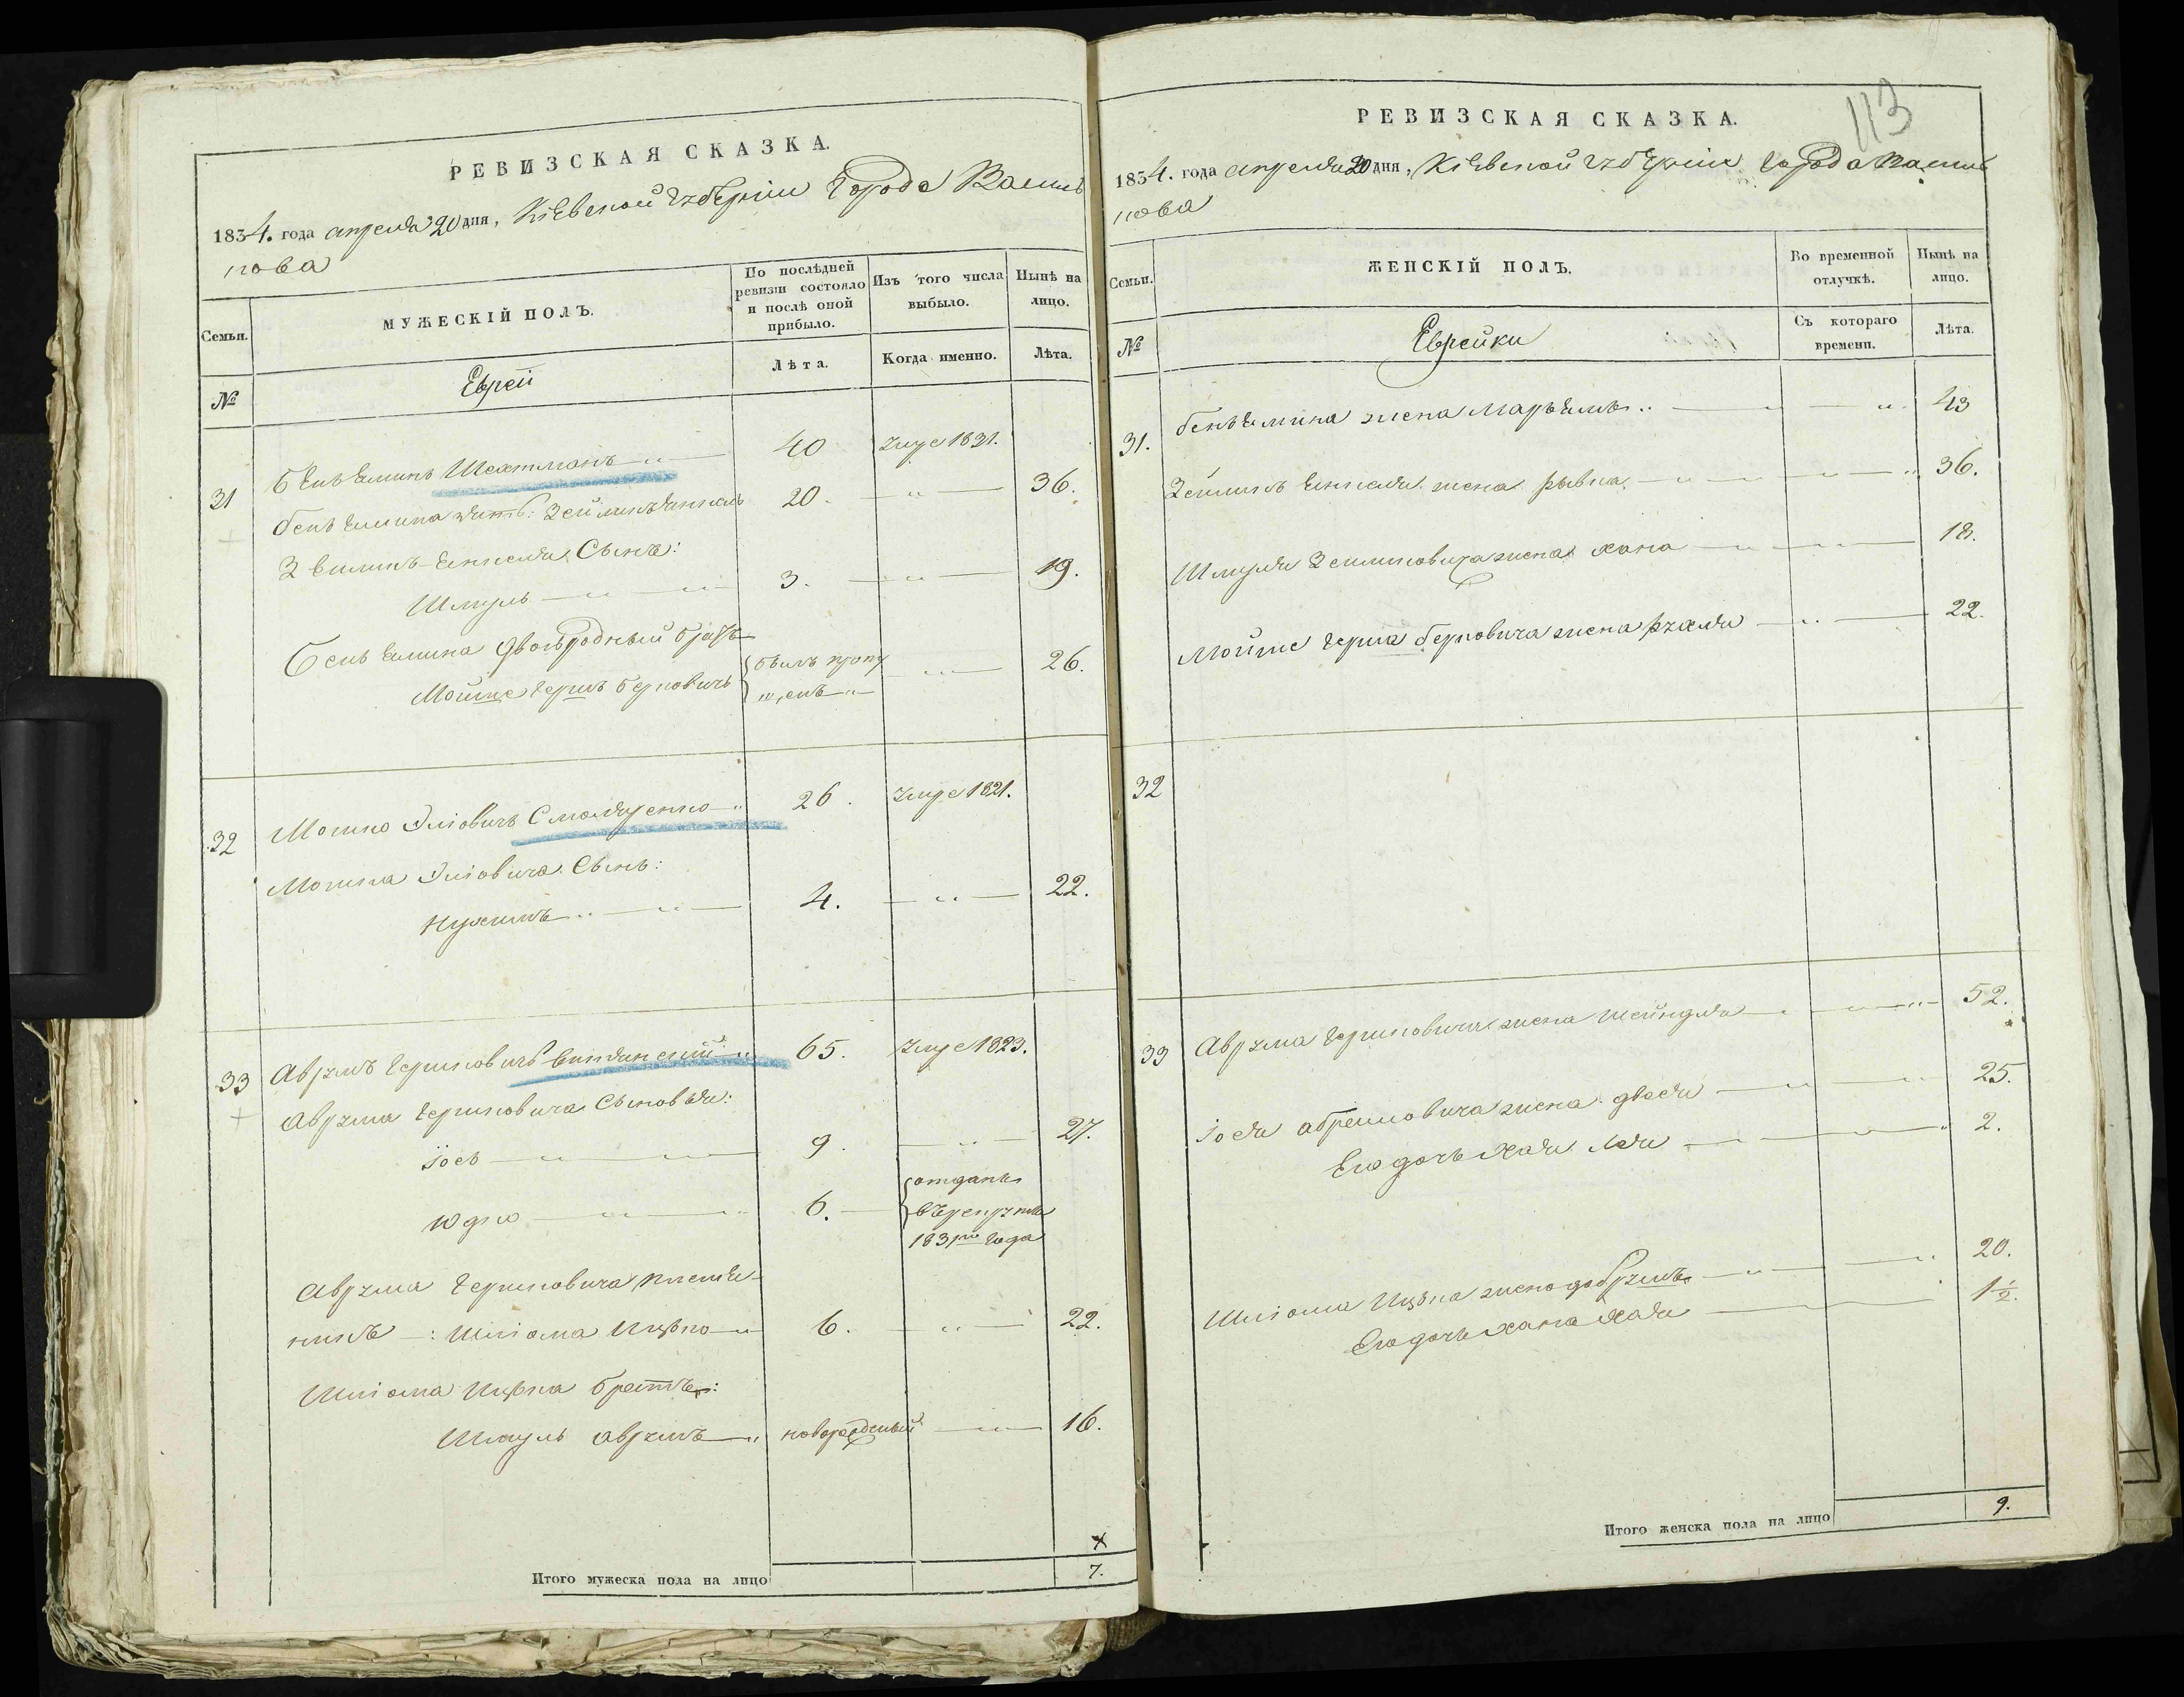 РЕВИЗСКАЯ СКАЗКА.
1834. года апреля 20 дня, Кіевской губерніи Города Василь
кова
Семьи.
МУЖЕСКІЙ ПОЛЪ.
По послѣдней ревизіи состояло и послѣ оной прибыло.
Изъ того числа выбыло.
Нынѣ на лицо.
№
Еврей
Лѣта.
Когда именно.
Лѣта.
31 Беньеминъ Шехтманъ 40 умре 1821.
Беньемина зять: Зейликъ Янкель 20. 36.
Зейликъ Янкеля Сынъ:
Шмуль 3. 19.
Беньемина двоюродный братъ
Мойше Гершъ Берковичъ былъ пропу 26.
щенъ
32 Мошко Эліовичъ Смоляренко 26. умре 1821.
Мошка Эліовича Сынъ:
Нухимъ 4. 22.
33 Аврумъ Гершковичъ 65. умре 1823.
Аврума Гершковича Сыновья:
Іось 9. 27.
Юдко 6. отданъ
въ рекруты
1831го года
Аврума Гершковича племя-
никъ: Шліома Ицько 6. 22.
Шліома Ицька братъ:
Шмуль Аврумъ новорожденый 16.
Итого мужеска пола на лицо 7.
113
РЕВИЗСКАЯ СКАЗКА.
1834. года апреля 20 дня, Кіевской губерніи Города Василь
кова
Семьи.
ЖЕНСКІЙ ПОЛЪ.
Во временной отлучкѣ.
Нынѣ на лицо.
№
Еврейки
Съ котораго времени.
Лѣта.
31. Беньемина жена Марьемъ 43
Зейликъ Янкеля жена Рывка 36.
Шмуля Зейликовича жена Хана 18.
Мойше Герша Берковича жена Рухля 22.
32
33 Аврума Гершковича жена Шейндля 52.
Іося Абрамовича жена Двося 25.
Его дочь Хая Лея 2.
Шліома Ицька жена Добрумъ 20.
Его дочь Хана Хая 1½.
Итого женска пола на лицо 9.